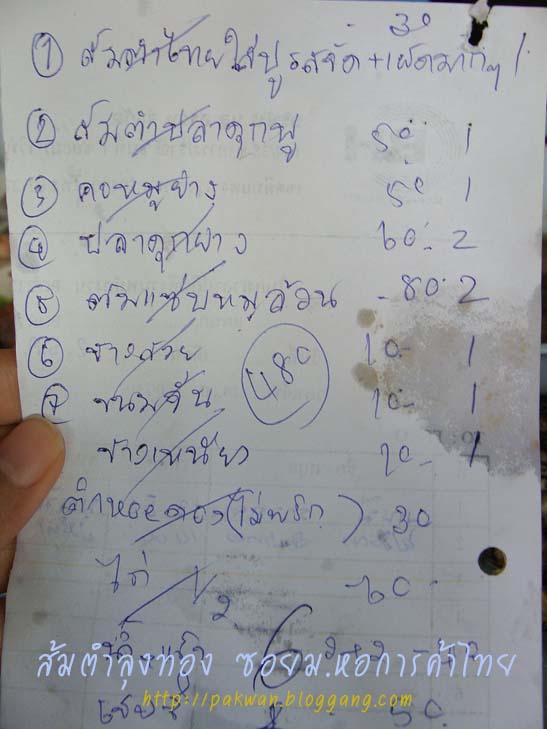 30
① ส้มตำไทยใส่ปู รสจัด + เผ็ดมากๆ 1
② ส้มตำปลาดุกฟู 50 1
③ คอหมูย่าง 50 1
④ ปลาดุกย่าง 60.- 2
⑤ ต้มแซ่บหมูล้วน -80 2
⑥ ข้าวสวย 10- 1
⑦ ขนมจีน 10- 1
ข้าวเหนียว 10- 1
480
ตำหอยดอง (ไม่พริก) 30
ไก่ 1/2 60
ส้มตำลุงทอง ซอยม.หอการค้าไทย
http://pakwan.bloggang.com
50